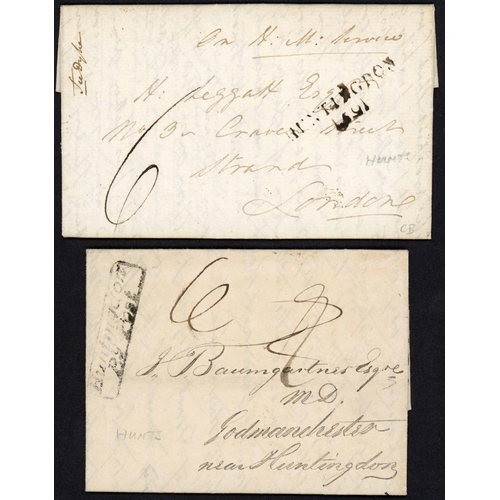 On H: M: Service
H: Leggatt Esq
No 3 Craven Street
Strand
London
6
HUNTINGDON
HUNTS
CB
6
J. Baumgartner Esqre
M.D.
Godmanchester
near Huntingdon
Huntingdon
Py Post
HUNTS